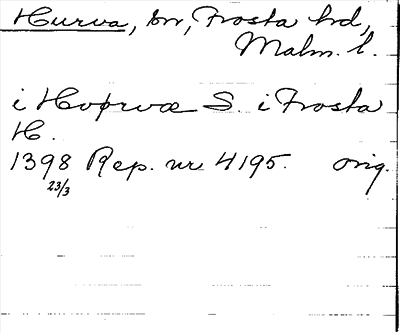 Hurva, sn, Frosta hd,
Malm. l.
i Hoprwæ S. i Frosta
H.
1398 Rep. nr 4195. orig.
23/3